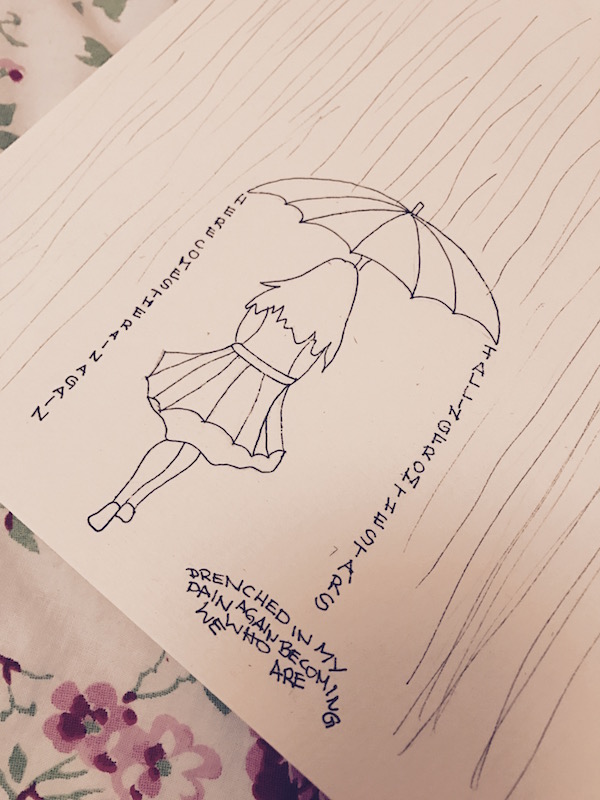 HERECOMESTHERAINAGAIN
FALLINGFROMTHESTARS
DRENCHED IN MY
PAIN AGAIN BECOMING
WHO
WE ARE